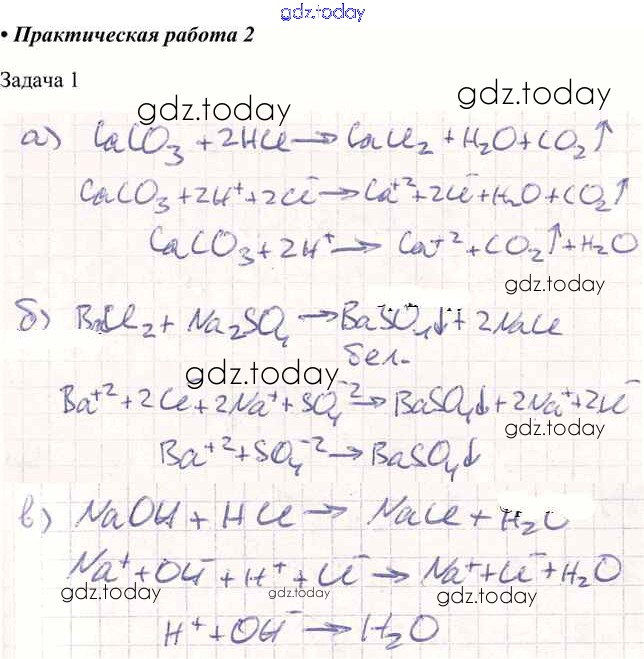 gdz.today
• Практическая работа 2
Задача 1
gdz.today
gdz.today
а) CaCO₃ + 2HCl → CaCl₂ + H₂O + CO₂↑
CaCO₃ + 2H⁺ + 2Cl⁻ → Ca⁺² + 2Cl⁻ + H₂O + CO₂↑
CaCO₃ + 2H⁺ → Ca⁺² + CO₂↑ + H₂O
gdz.today
б) BaCl₂ + Na₂SO₄ → BaSO₄↓ + 2NaCl
бел.
gdz.today
Ba⁺² + 2Cl + 2Na⁺ + SO₄⁻² → BaSO₄↓ + 2Na⁺ + 2Cl⁻
gdz.today
Ba⁺² + SO₄⁻² → BaSO₄↓
в) NaOH + HCl → NaCl + H₂O
Na⁺ + OH⁻ + H⁺ + Cl⁻ → Na⁺ + Cl⁻ + H₂O
gdz.today gdz.today gdz.today
H⁺ + OH⁻ → H₂O